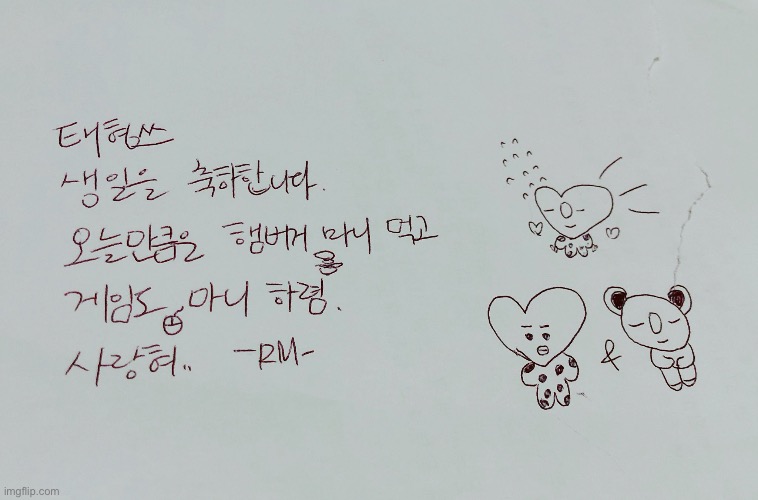 태형쓰
생일을 축하합니다.
오늘만큼은 햄버거 마니 먹고
게임도 마니 하렴.
사랑혀..
-RM-
&
imgflip.com